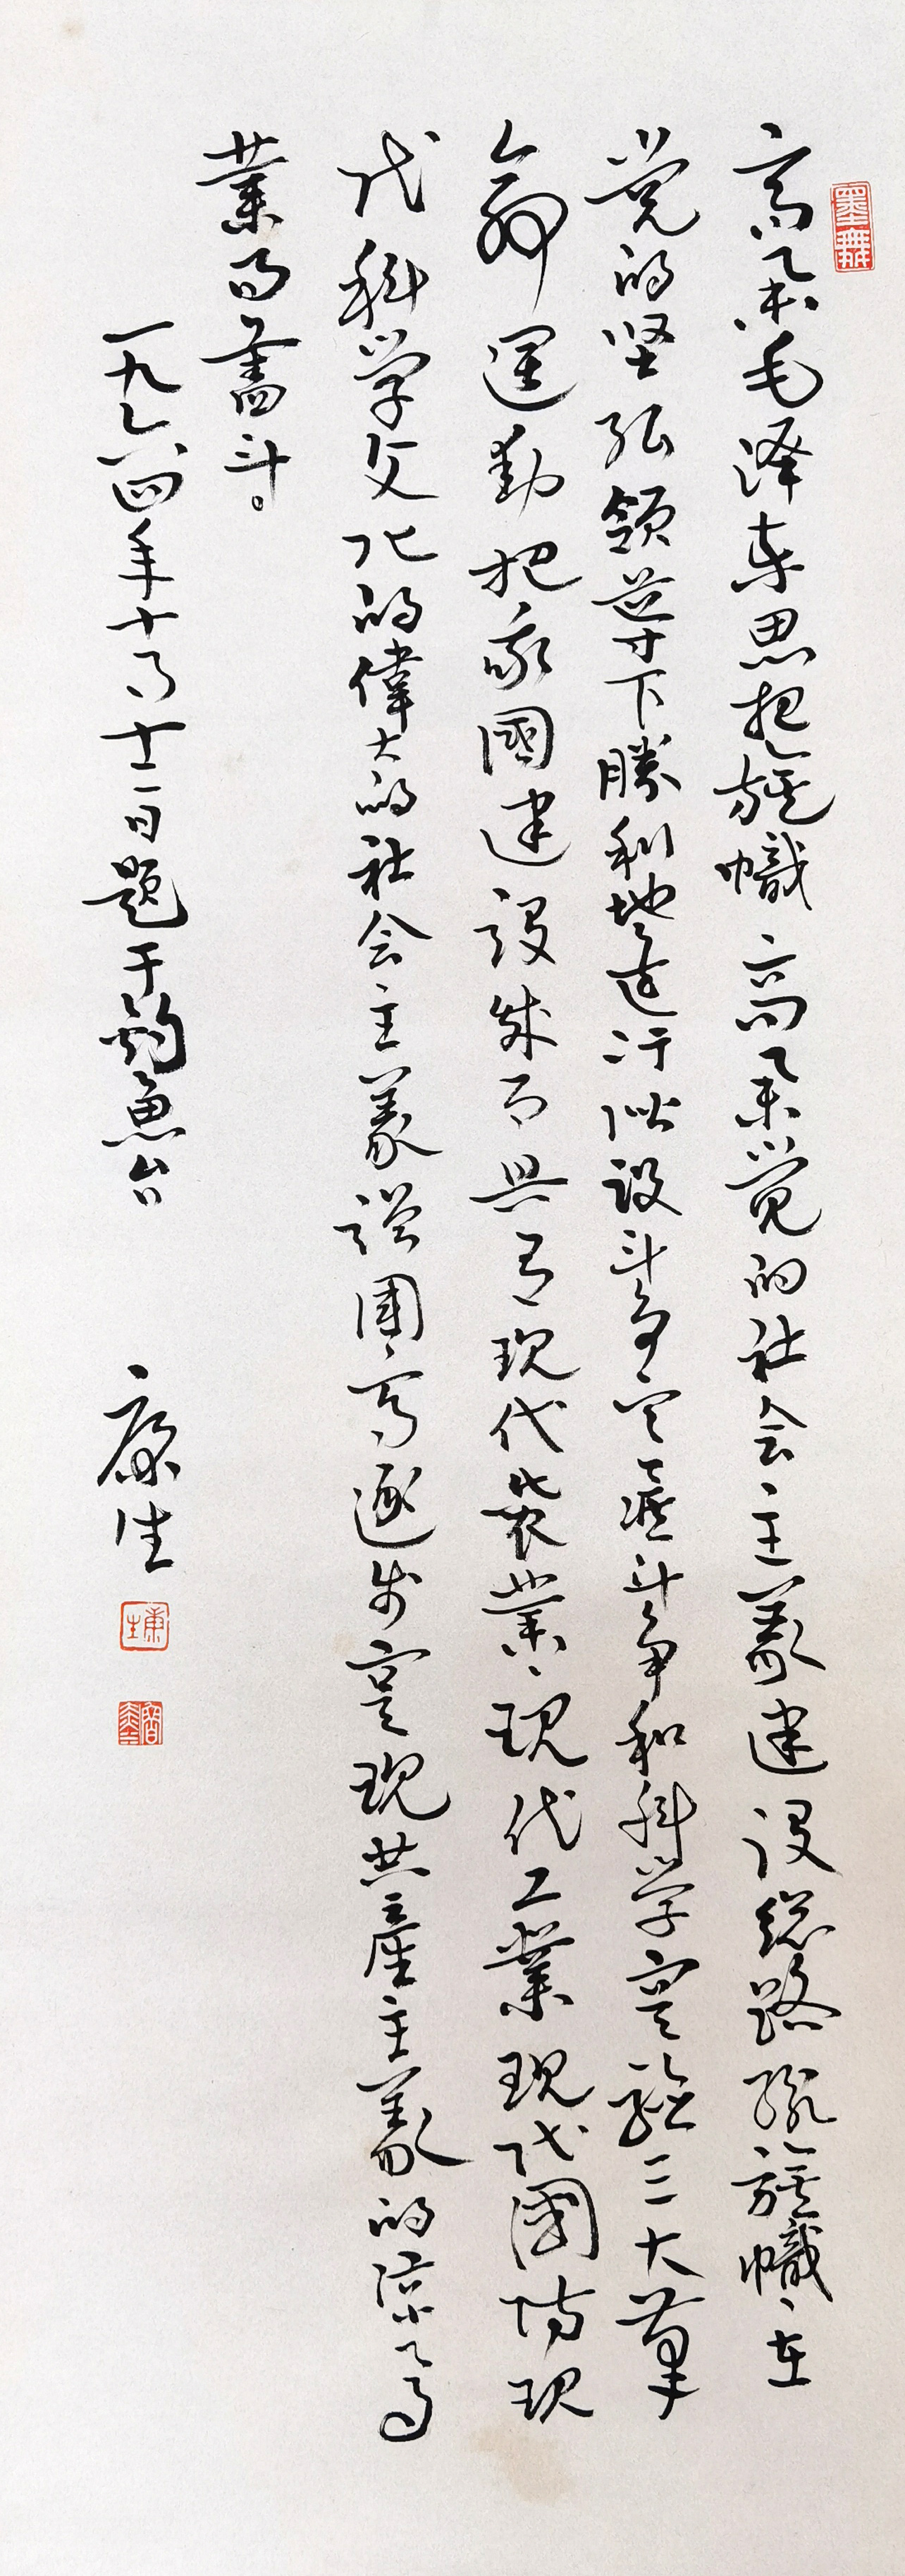 高举毛泽东思想旗帜高举党的社会主义建设总路线旗帜在
党的坚强领导下胜利地进行阶级斗争生产斗争和科学实验三大革
命运动把我國建设成为具有现代农業、现代工業现代國防现
代科学文化的偉大的社会主義强國、为逐步实现共産主義的崇高
業而奮斗。
一九六四年十月十一日题于钓魚台 康生
康生